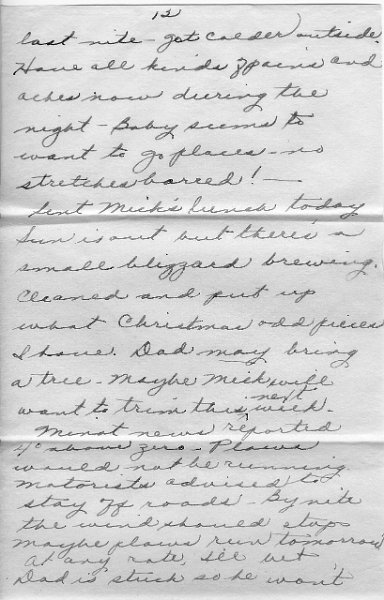 12
last nite - got colder outside.
Have all kinds of pains and
aches now during the
night - Baby seems to
want to go places - no
stretches barred! -
Sent Mick's lunch today
Sun is out but there's a
small blizzard brewing.
Cleaned and put up
what Christmas odd pieces
I have. Dad may bring
a tree - Maybe Mick will
want to trim this next week.
Minot news reported
4° above zero - Plows
would not be running
motorists advised to
stay off roads - By nite
the wind should stop
maybe plows run tomorrow
At any rate, I'll bet
Dad is stuck so he won't